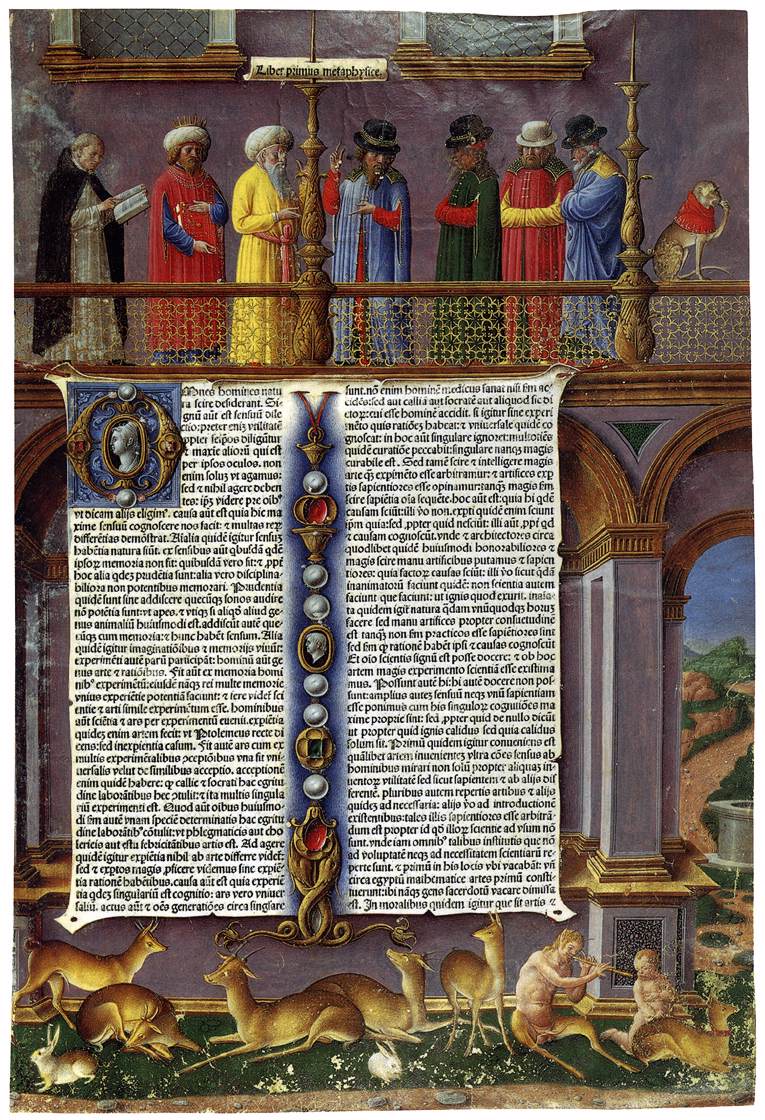 Liber primus metaphysice.
Omnes homines natu
ra scire desiderant. Si
gnũ aũt est sensuũ dile
ctio: preter eni3 vtilitatẽ
ppter seip̃os diligũtur
⁊ maxie aliorũ qui est
per ipsos oculos. non
enim solu3 vt agamus:
sed ⁊ nihil agere deben
tes: ip̃3 videre pre oib9
vt dicam alijs eligim9. causa aũt est quia hic ma
xime sensuũ cognoscere nos facit: ⁊ multas rerũ
differẽtias demõstrat. Aĩalia quidẽ igitur sensuũ
habẽtia natura siũt. ex sensibus aũt qbusdã qdẽ
ipsor3 memoria non fit: quibusdã vero fit: ⁊ ppt
hoc alia qde3 prudẽtia sunt: alia vero disciplina
biliora non potentibus memorari. Prudentia
quidẽ sunt sine addiscere quecũq3 sonos audire
nõ potẽtia sunt: vt apes. ⁊ vtiq3 si aliqõ aliud ge
nus animaliũ huiusmodi est. addiscũt autẽ que
cũq3 cum memoria: ⁊ hunc habẽt sensum. Alia
quidẽ igitur imaginatiõibus ⁊ memorijs viuũt:
experimẽti autẽ parũ participãt: hominũ aũt ge
nus arte ⁊ ratiõibus. Fit aũt ex memoria homi
nib9 experimẽtũ: eiusdẽ nãq3 rei multe memorie
vnius experiẽtie potentiã faciunt: ⁊ fere videt sci
entie ⁊ arti simile experimẽtum esse. hominibus
aũt sciẽtia ⁊ ars per experimẽtũ euenit. expiẽtia
quide3 enim artem fecit: vt Ptolemeus recte di
cens: sed inexpientia casum. Fit autẽ ars cum ex
multis experimẽtalibus ꝓceptõibus vna fit vni
uersalis velut de similibus acceptio. acceptionẽ
enim quidẽ habere: q callie ⁊ socrati hac egritu
dine laborãtibus hec ↄtulit: ⁊ ita multis singula
riũ experimenti est. Quod aũt oibus huiusmo
di fm autẽ vnam specie determinatis hac egritu
dine laborãtib9 cõtulit: vt phlegmaticis aut cho
lericis aut estu febricitãtibus artis est. Ad agere
quidẽ igitur expiẽtia nihil ab arte differre videt:
sed ⁊ exptos magis ꝓficere videmus sine expiẽ
tia rationẽ habẽtibus. causa aũt est quia experiẽ
tia qde3 singulariũ est cognitio: ars vero vniuer
saliũ. actus aũt ⁊ oẽs generatiões circa singlare
sunt. nõ enim hominẽ medicus sanat nisi fm ac
cidẽs: sed aut calliã aut socratẽ aut aliquod sic di
ctor3: cui esse hominẽ accidit. si igitur sine experi
mẽto quis ratiõe3 habeat: ⁊ vniuersale quidẽ co
gnoscat: in hoc aũt singulare ignoret: multotiẽs
quidẽ curatiõe peccabit: singulare nanq3 magis
curabile est. Sed tamẽ scire ⁊ intelligere magis
arte q̃3 expimẽto esse arbitramur: ⁊ artifices exp
tis sapientiores esse opinamur: tanq3 magis fm
scire sapiẽtia oĩa sequẽte. hoc aũt est: quia hi qdẽ
causam sciũt: illi ṽo non. expti quidẽ enim sciunt
ipm quia: sed, ppter quid nesciũt: illi aũt, ppt qd
⁊ causam cognoscũt. vnde ⁊ architectores circa
quodlibet quidẽ huiusmodi honorabiliores ⁊
magis scire manu artificibus putamus ⁊ sapien
tiores: quia factor3 causas sciũt: illi ṽo sicut q̃dã
inanimatorũ faciunt quidẽ: non scientia autem
faciunt que faciunt: ut ignis quod exurit. inaĩa
ta quidem igit natura qdam vnũquodq3 horu3
facere sed manu artifices propter consuetudinẽ
est tanq3 non fm practicos esse sapiẽtiores sint
sed fm q̃ rationẽ habẽt ipsi ⁊ causas cognoscũt
Et oĩo scientis signũ est posse docere: ⁊ ob hoc
artem magis experimento scientiã esse existima
mus. Possunt autẽ hi: hi autẽ docere non pos
sunt: amplius aute3 sensuũ neq3 vnũ sapientiam
esse ponimus cum his singulor3 cognitiões ma
xime proprie sint: sed, ppter quid de nullo dicũt
ut propter quid ignis calidus sed quia calidus
solum sit. Primũ quidem igitur conueniens est
quãlibet artem inuenientẽ vltra cões sensus ab
hominibus mirari non solũ propter aliqua3 in
uentor3 vtilitatẽ sed sicut sapientem ⁊ ab alijs dif
ferẽnẽ. pluribus autem repertis artibus ⁊ alijs
quide3 ad necessaria: alijs ṽo ad introductionẽ
existẽtibus: tales illis sapientiores esse arbitrã
dum est propter id qõ illor3 scientie ad vsum nõ
sunt. vnde iam omnib9 talibus institutis que nõ
ad voluptatẽ neq3 ad necessitatẽm scientiarũ re
perte sunt. ⁊ primũ in his locis vbi vacabãt: vñ
circa egyptũ mathẽmatice artes primũ consti
tuerunt: ibi nãq3 gens sacerdotũ vacare dimissa
est. In moralibus quidem igitur que sit artis ⁊